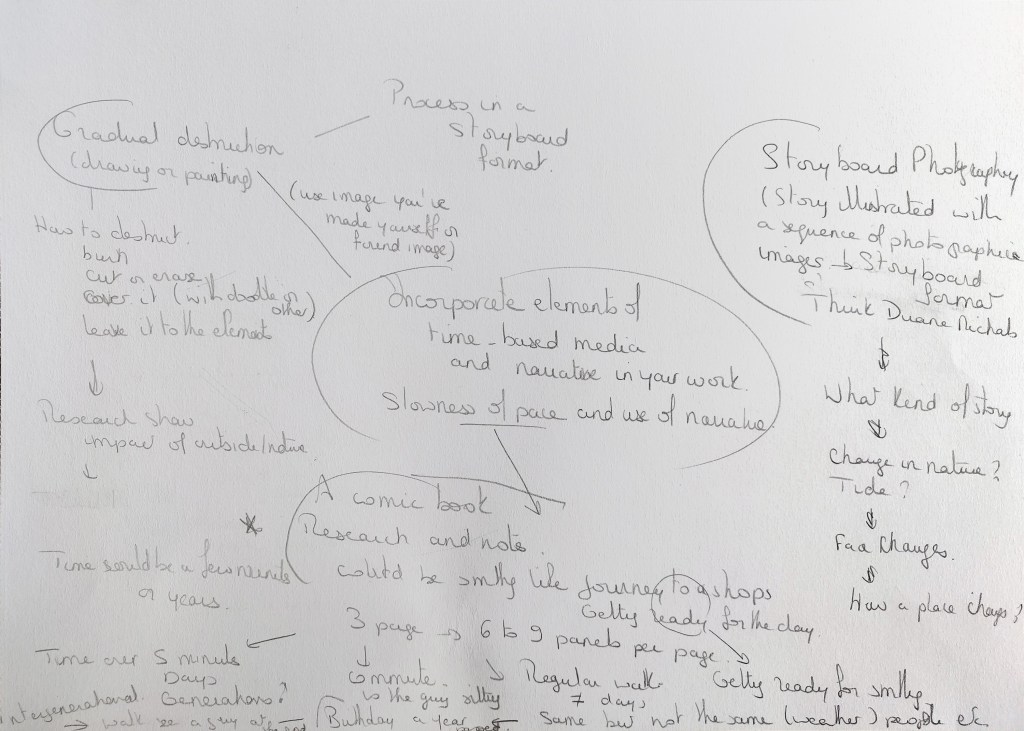 Process in a
Storyboard
format.
Gradual destruction
(drawing or painting)
(use image you've
made yourself or
found image)
How to destruct.
burn
cut or erase
cover it (with doodle or
other)
leave it to the elements
Research show
impact of outside/nature
Time could be a few minutes
or years.
Incorporate elements of
time-based media
and narrative in your work.
Slowness of pace and use of narrative.
Storyboard Photography
(Story illustrated with
a sequence of photographic
images → Storyboard
format
Think Duane Michals
What kind of story
Change in nature?
Tide?
Face changes.
How a place changes?
A comic book
Research and note.
could be smthg like journey to shops
Getting ready for the day.
3 page → 6 to 9 panels per page.
Time over 5 minutes
Days
intergenerational. Generations?
Commute.
is the guy sitting
Regular walk
7 days
Getting ready for smthg
→ walk see a guy at
Birthday a year
Same but not the same (weather) people etc